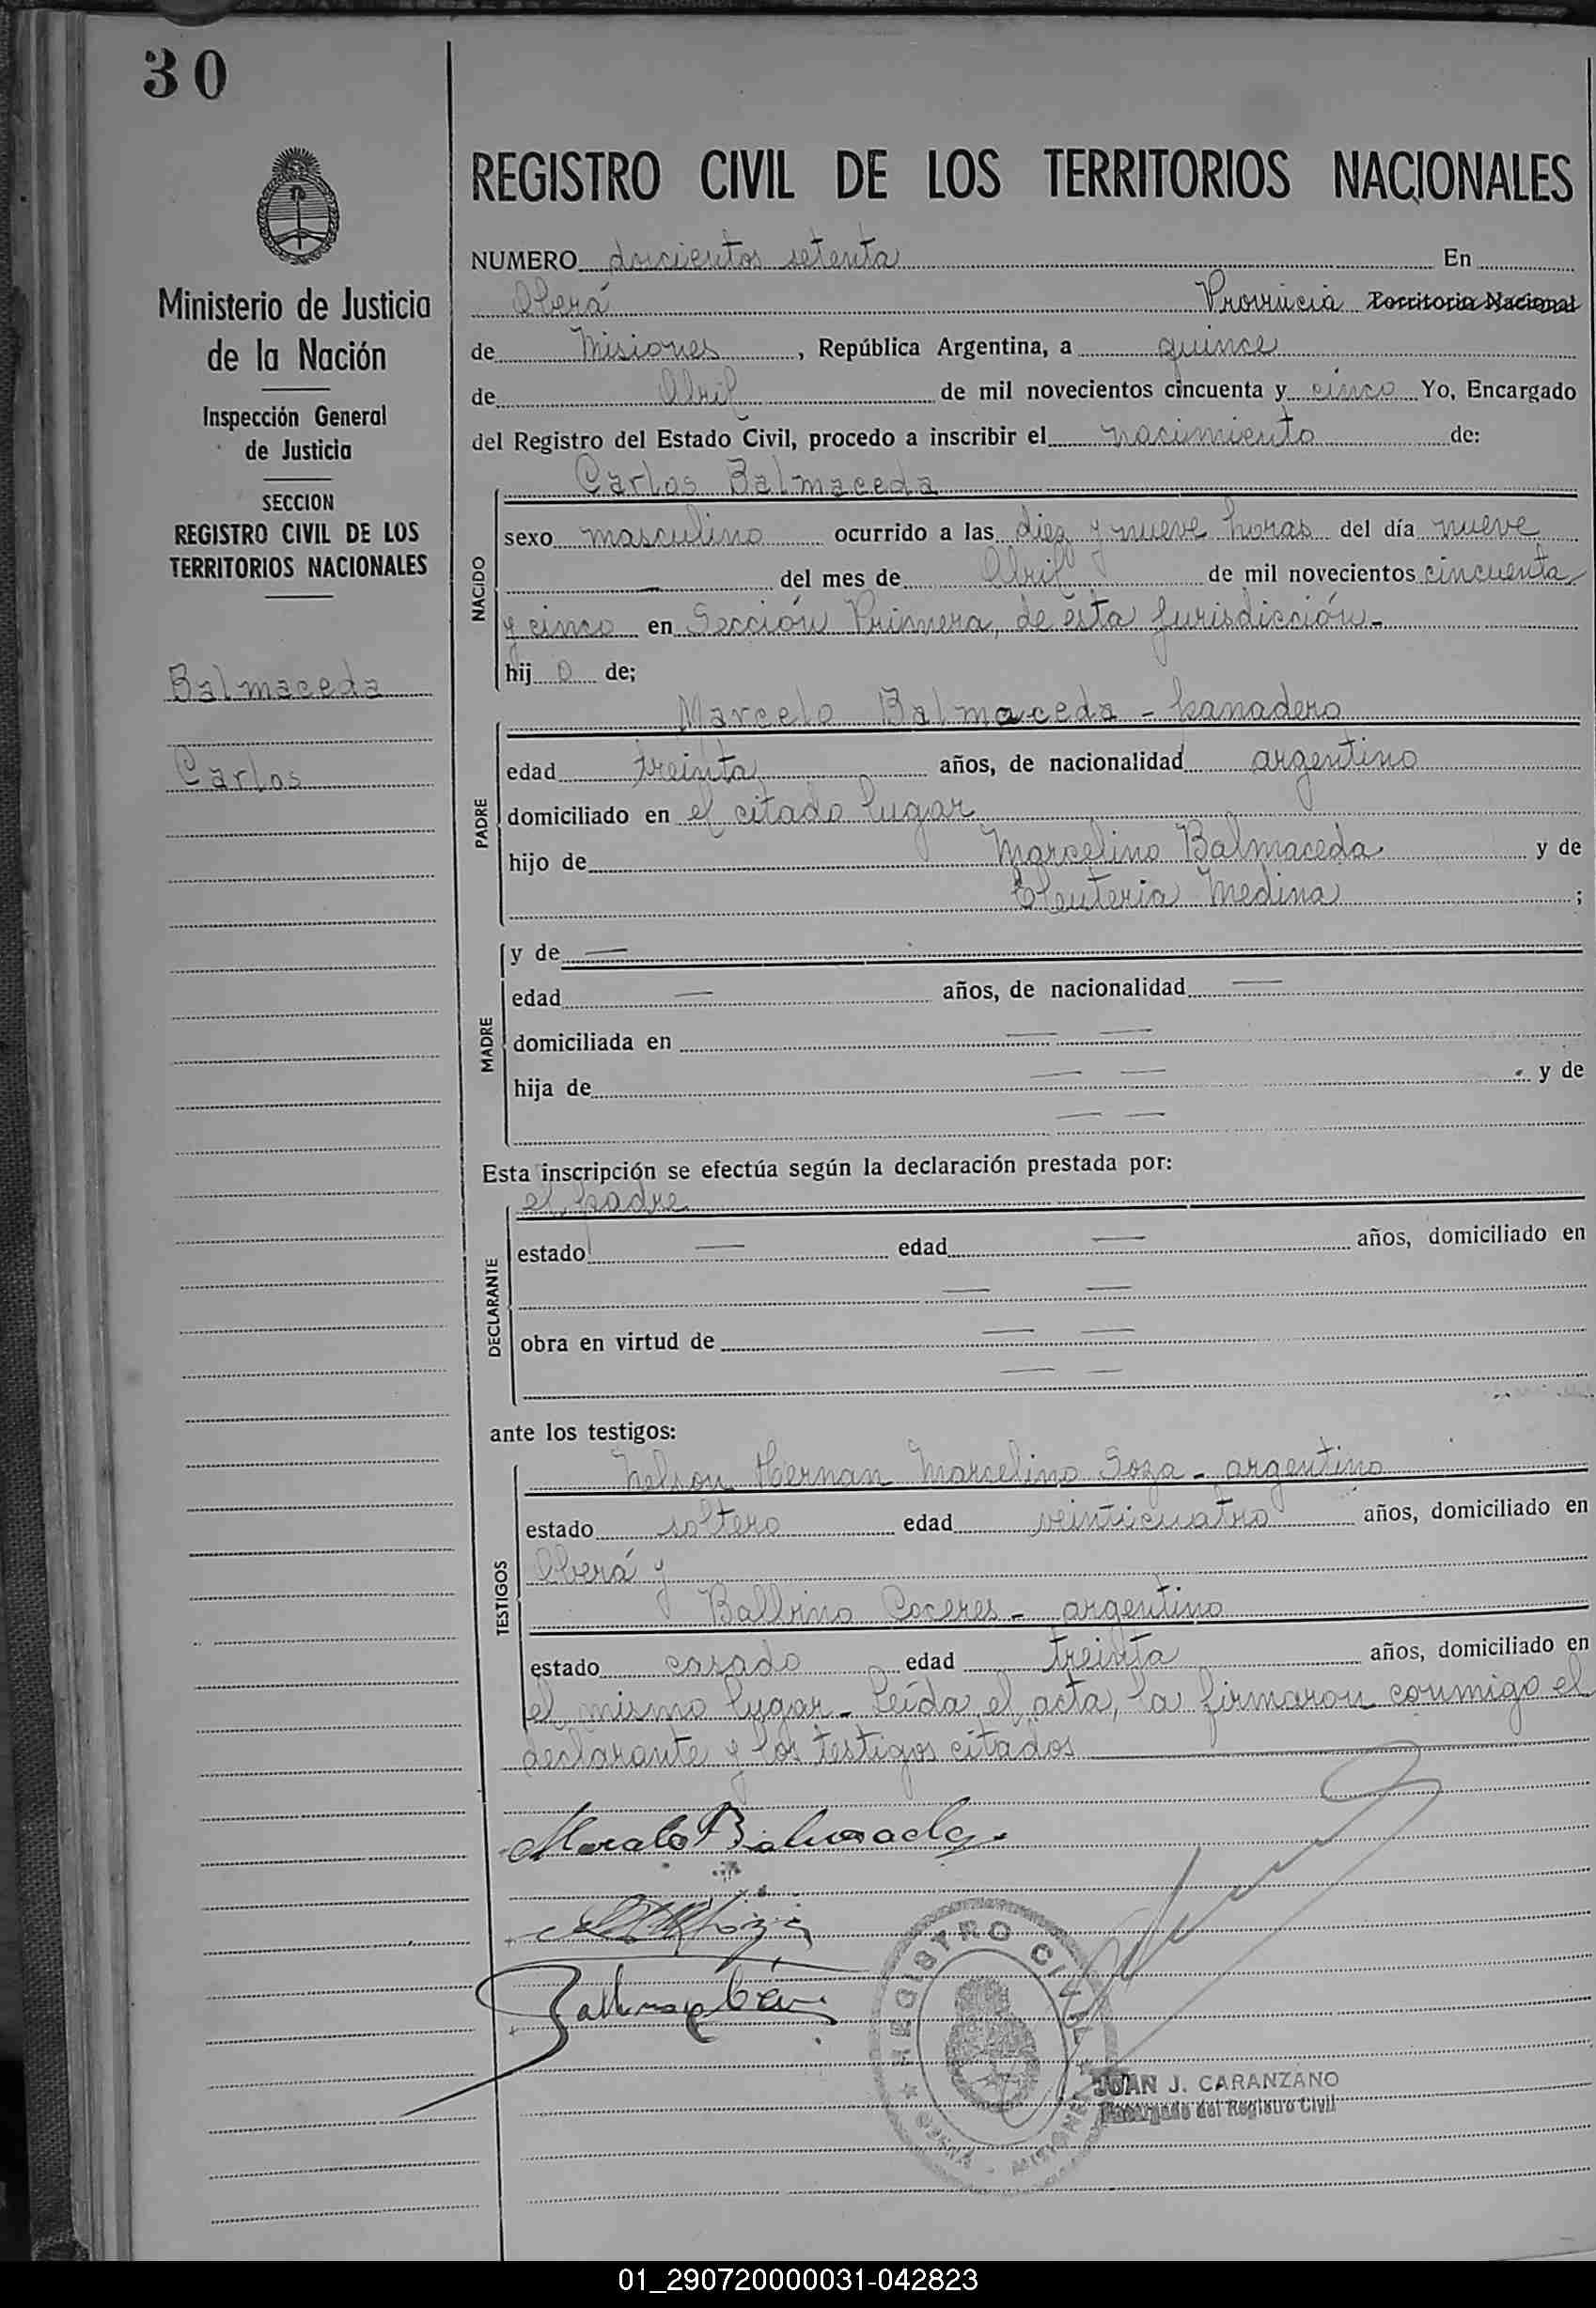 30
REGISTRO CIVIL DE LOS TERRITORIOS NACIONALES
Ministerio de Justicia
de la Nación
Inspección General
de Justicia
SECCION
REGISTRO CIVIL DE LOS
TERRITORIOS NACIONALES
Balmaceda
Carlos
NUMERO doscientos setenta En
Oberá Provincia Territorio Nacional
de Misiones, República Argentina, a quince
de Abril de mil novecientos cincuenta y cinco Yo, Encargado
del Registro del Estado Civil, procedo a inscribir el nacimiento de:
NACIDO
Carlos Balmaceda
sexo masculino ocurrido a las diez y nueve horas del día nueve
— del mes de Abril de mil novecientos cincuenta
y cinco en Sección Primera, de ésta jurisdicción.-
hijo de;
PADRE
Marcelo Balmaceda - panadero
edad treinta años, de nacionalidad argentino
domiciliado en el citado lugar
hijo de Marcelino Balmaceda y de
Eleuteria Medina ;
MADRE
y de —
edad — años, de nacionalidad —
domiciliada en — —
hija de — — y de
— —
Esta inscripción se efectúa según la declaración prestada por:
DECLARANTE
el padre
estado — edad — años, domiciliado en
— —
obra en virtud de — —
— —
ante los testigos:
TESTIGOS
Nelson Hernan Marcelino Soza - argentino
estado soltero edad veinticuatro años, domiciliado en
Oberá y
Balbino Coceres - argentino
estado casado edad treinta años, domiciliado en
el mismo lugar - Leída el acta, la firmaron conmigo el
declarante y los testigos citados
REGISTRO CIVIL
OBERA - MISIONES
JUAN J. CARANZANO
Encargado del Registro Civil
01_290720000031-042823